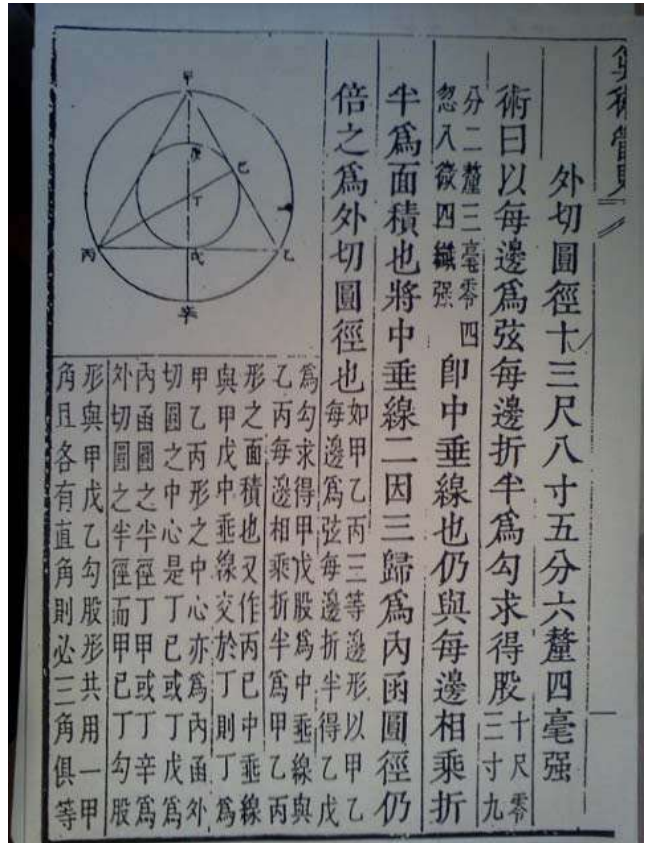 算術管見
外切圓徑十三尺八寸五分六釐四毫强
術曰以每邊爲弦每邊折半爲勾求得股
十尺零
三寸九
分二釐三毫零四
忽八微四纖强
卽中垂線也仍與每邊相乘折
半爲面積也將中垂線二因三歸爲內函圓徑仍
倍之爲外切圓徑也
如甲乙丙三等邊形以甲乙
每邊爲弦每邊折半得乙戊
爲勾求得甲戊股爲中垂線與
乙丙每邊相乘折半爲甲乙丙
形之面積也又作丙巳中垂線
與甲戊中垂線交於丁則丁爲
甲乙丙形之中心亦爲內函外
切圓之中心是丁巳或丁戊爲
內函圓之半徑丁甲或丁辛爲
外切圓之半徑而甲巳丁勾股
形與甲戊乙勾股形共用一甲
角且各有直角則必三角俱等
甲
庚
巳
丁
丙
戊
乙
辛